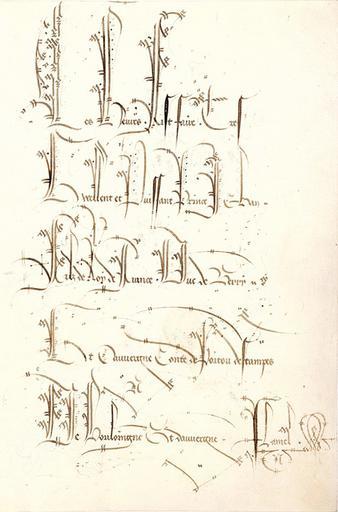 Ces Heures fist faire Tres
Excellent et Puissant Prince Jehan
Filz de Roy de France Duc de Berry
Et Dauvergne Conte de Poitou destampes
De Bouloingne Et dauvergne. Flamel